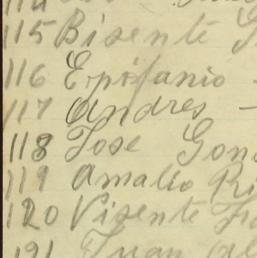 114
115 Bisente
116 Epifanio -
117 Andres -
118 Jose Gon
119 Amalio Ri
120 Visente
121 Juan